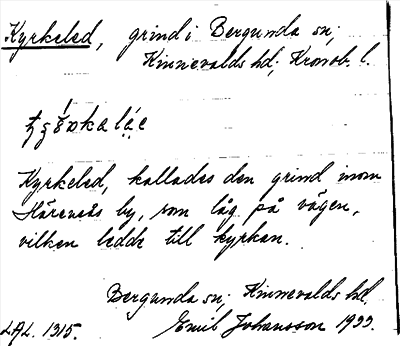 Kyrkeled, grind i Bergunda sn;
Kinnevalds hd; Kronob. l.
Kyrkeled, kallades den grind inom
by, som låg på vägen,
vilken ledde till kyrkan.
Bergunda sn; Kinnevalds hd.
LAL. 1315. Emil Johansson 1933.